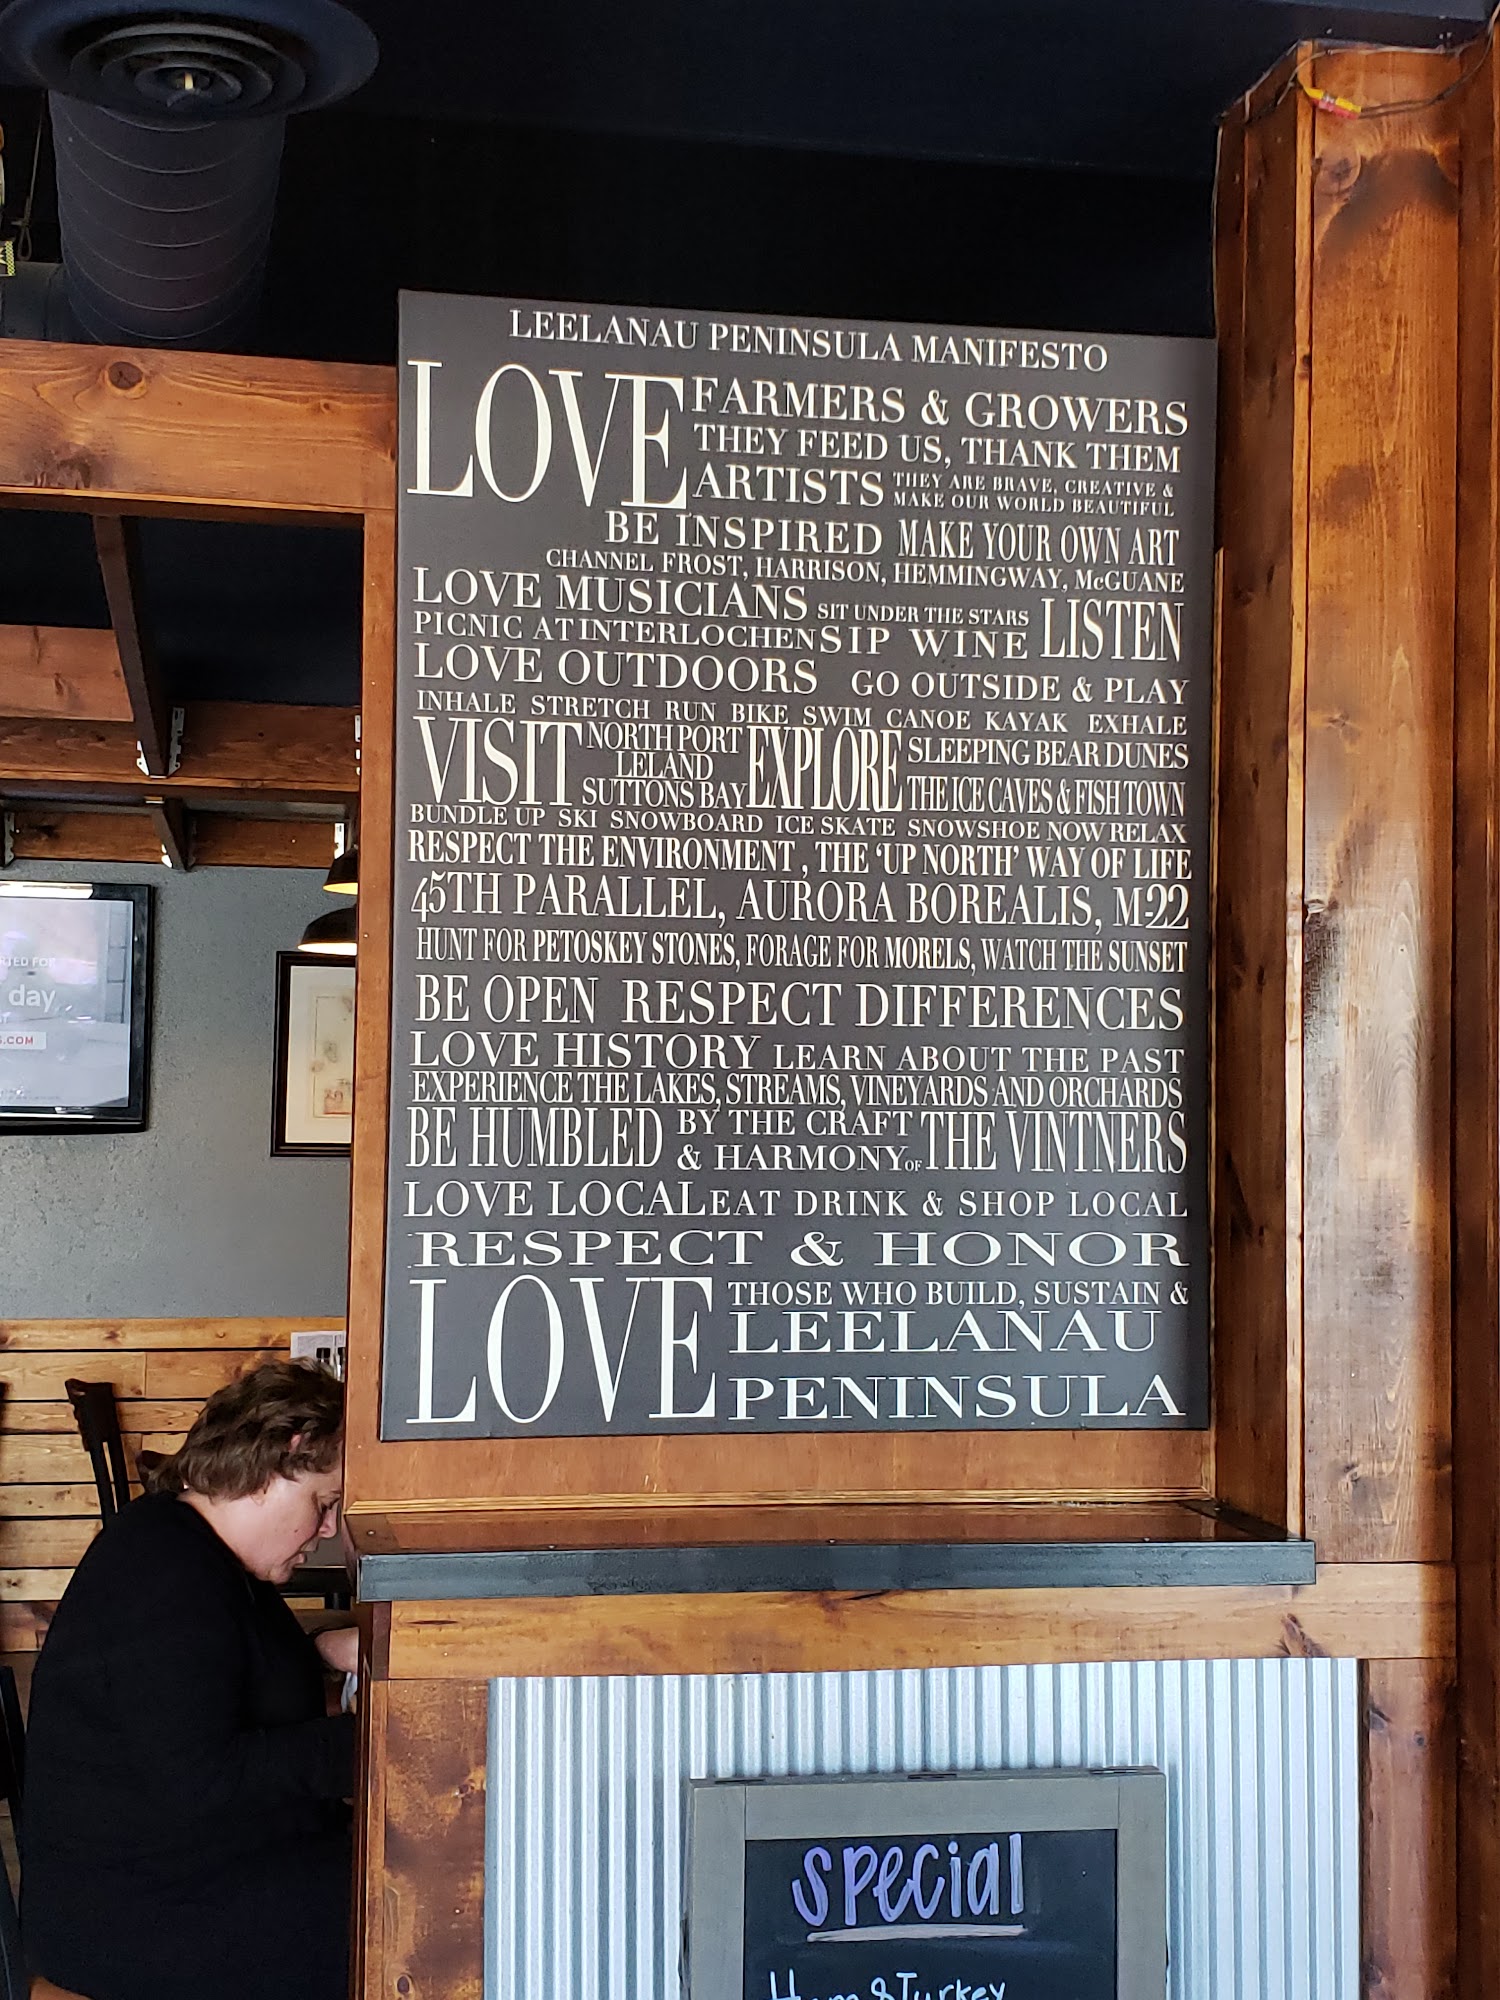 LEELANAU PENINSULA MANIFESTO
LOVE FARMERS & GROWERS
THEY FEED US, THANK THEM
ARTISTS THEY ARE BRAVE, CREATIVE &
MAKE OUR WORLD BEAUTIFUL
BE INSPIRED MAKE YOUR OWN ART
CHANNEL FROST, HARRISON, HEMMINGWAY, McGUANE
LOVE MUSICIANS SIT UNDER THE STARS LISTEN
PICNIC AT INTERLOCHEN SIP WINE
LOVE OUTDOORS GO OUTSIDE & PLAY
INHALE STRETCH RUN BIKE SWIM CANOE KAYAK EXHALE
VISIT NORTH PORT
LELAND
SUTTONS BAY
EXPLORE SLEEPING BEAR DUNES
THE ICE CAVES & FISH TOWN
BUNDLE UP SKI SNOWBOARD ICE SKATE SNOWSHOE NOW RELAX
RESPECT THE ENVIRONMENT, THE 'UP NORTH' WAY OF LIFE
45TH PARALLEL, AURORA BOREALIS, M-22
HUNT FOR PETOSKEY STONES, FORAGE FOR MORELS, WATCH THE SUNSET
BE OPEN RESPECT DIFFERENCES
LOVE HISTORY LEARN ABOUT THE PAST
EXPERIENCE THE LAKES, STREAMS, VINEYARDS AND ORCHARDS
BE HUMBLED BY THE CRAFT
& HARMONY OF THE VINTNERS
LOVE LOCAL EAT DRINK & SHOP LOCAL
RESPECT & HONOR
LOVE THOSE WHO BUILD, SUSTAIN &
LEELANAU
PENINSULA
day
.COM
Special
Ham & Turkey